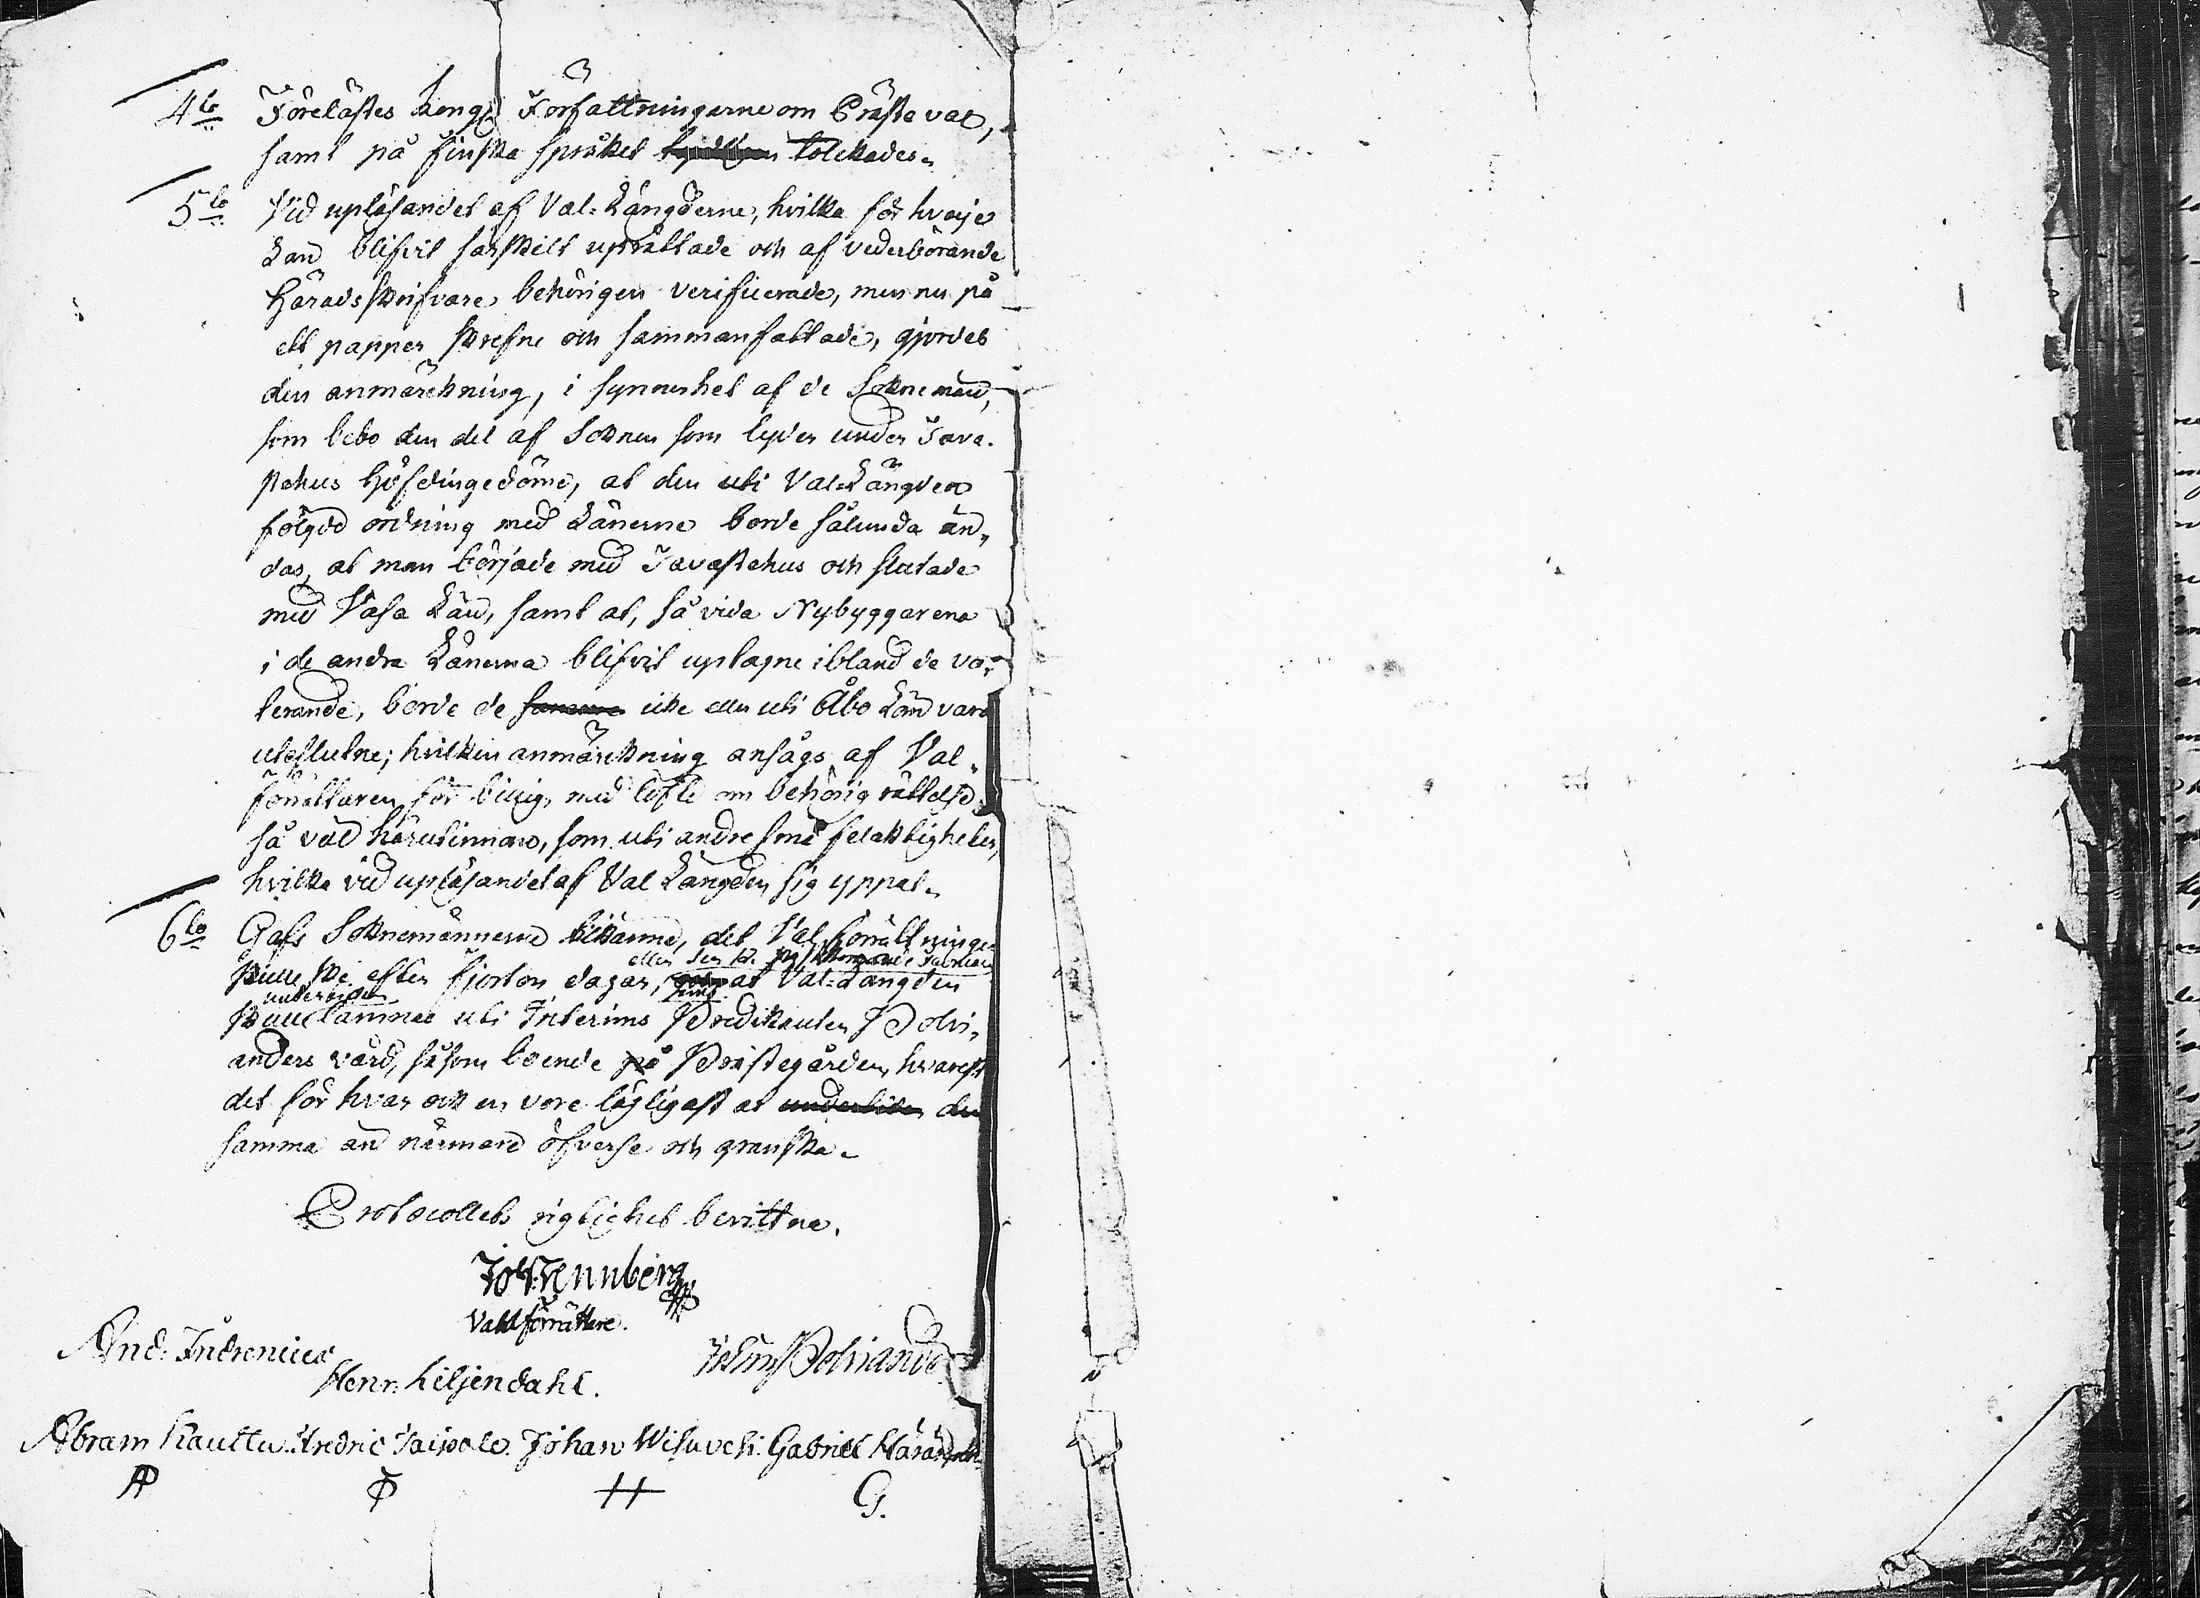 4to Förelästes Kongl. Författningarne om Präste val,
samt på finska språket tolckades.
5to Vid upläsandet af Val-Längderne, hvilka för hvarje
Län blifvit särskilt uprättade och af vederbörande
Häradsskrifvare behörigen verificerade, men nu på
ett papper skrefne och sammanfattade, gjordes
den anmärckning, i synnerhet af de Soknemän,
som bebo den del af Soknen som lyder under Tava-
stehus Höfdingedöme, at den uti Val-Längden
fölgde ordning med Länerne borde sålunda än-
das, at man började med Tavastehus och slutade
med Vasa Län, samt at, så vida Nybyggarena
i de andra Länerna blifvit uptagne ibland de vo-
terande, borde de icke eller uti Åbo Län vara
uteslutne; hvilken anmärckning ansågs af Val-
förrättaren för billig, med löfte om behörig rättelse
så väl härutinnan, som uti andre små felaktigheter,
hvilka vid upläsandet af Val Längden sig yppat.
6to Gafs Soknemännerne tilkänna, det Valförrättningen
eller den
skulle ske efter fjorton dagar, at Val-Längden
skulle lämnas uti Interims Predikanten Polvi-
anders vård, såsom boende på Prästegården, hvarest
det för hvar och en vore läjligast at den
samma än närmare öfverse och granska.
Protocollets rigtighet bevittna.
Joh. Tennberg
Valförrättare.
And: Indrenius
Johan Polviander
Henr: Liljendahl.
Abram Kauttu. Fredric Taipale. Johan Wihuvesi. Gabriel
AP F H G.